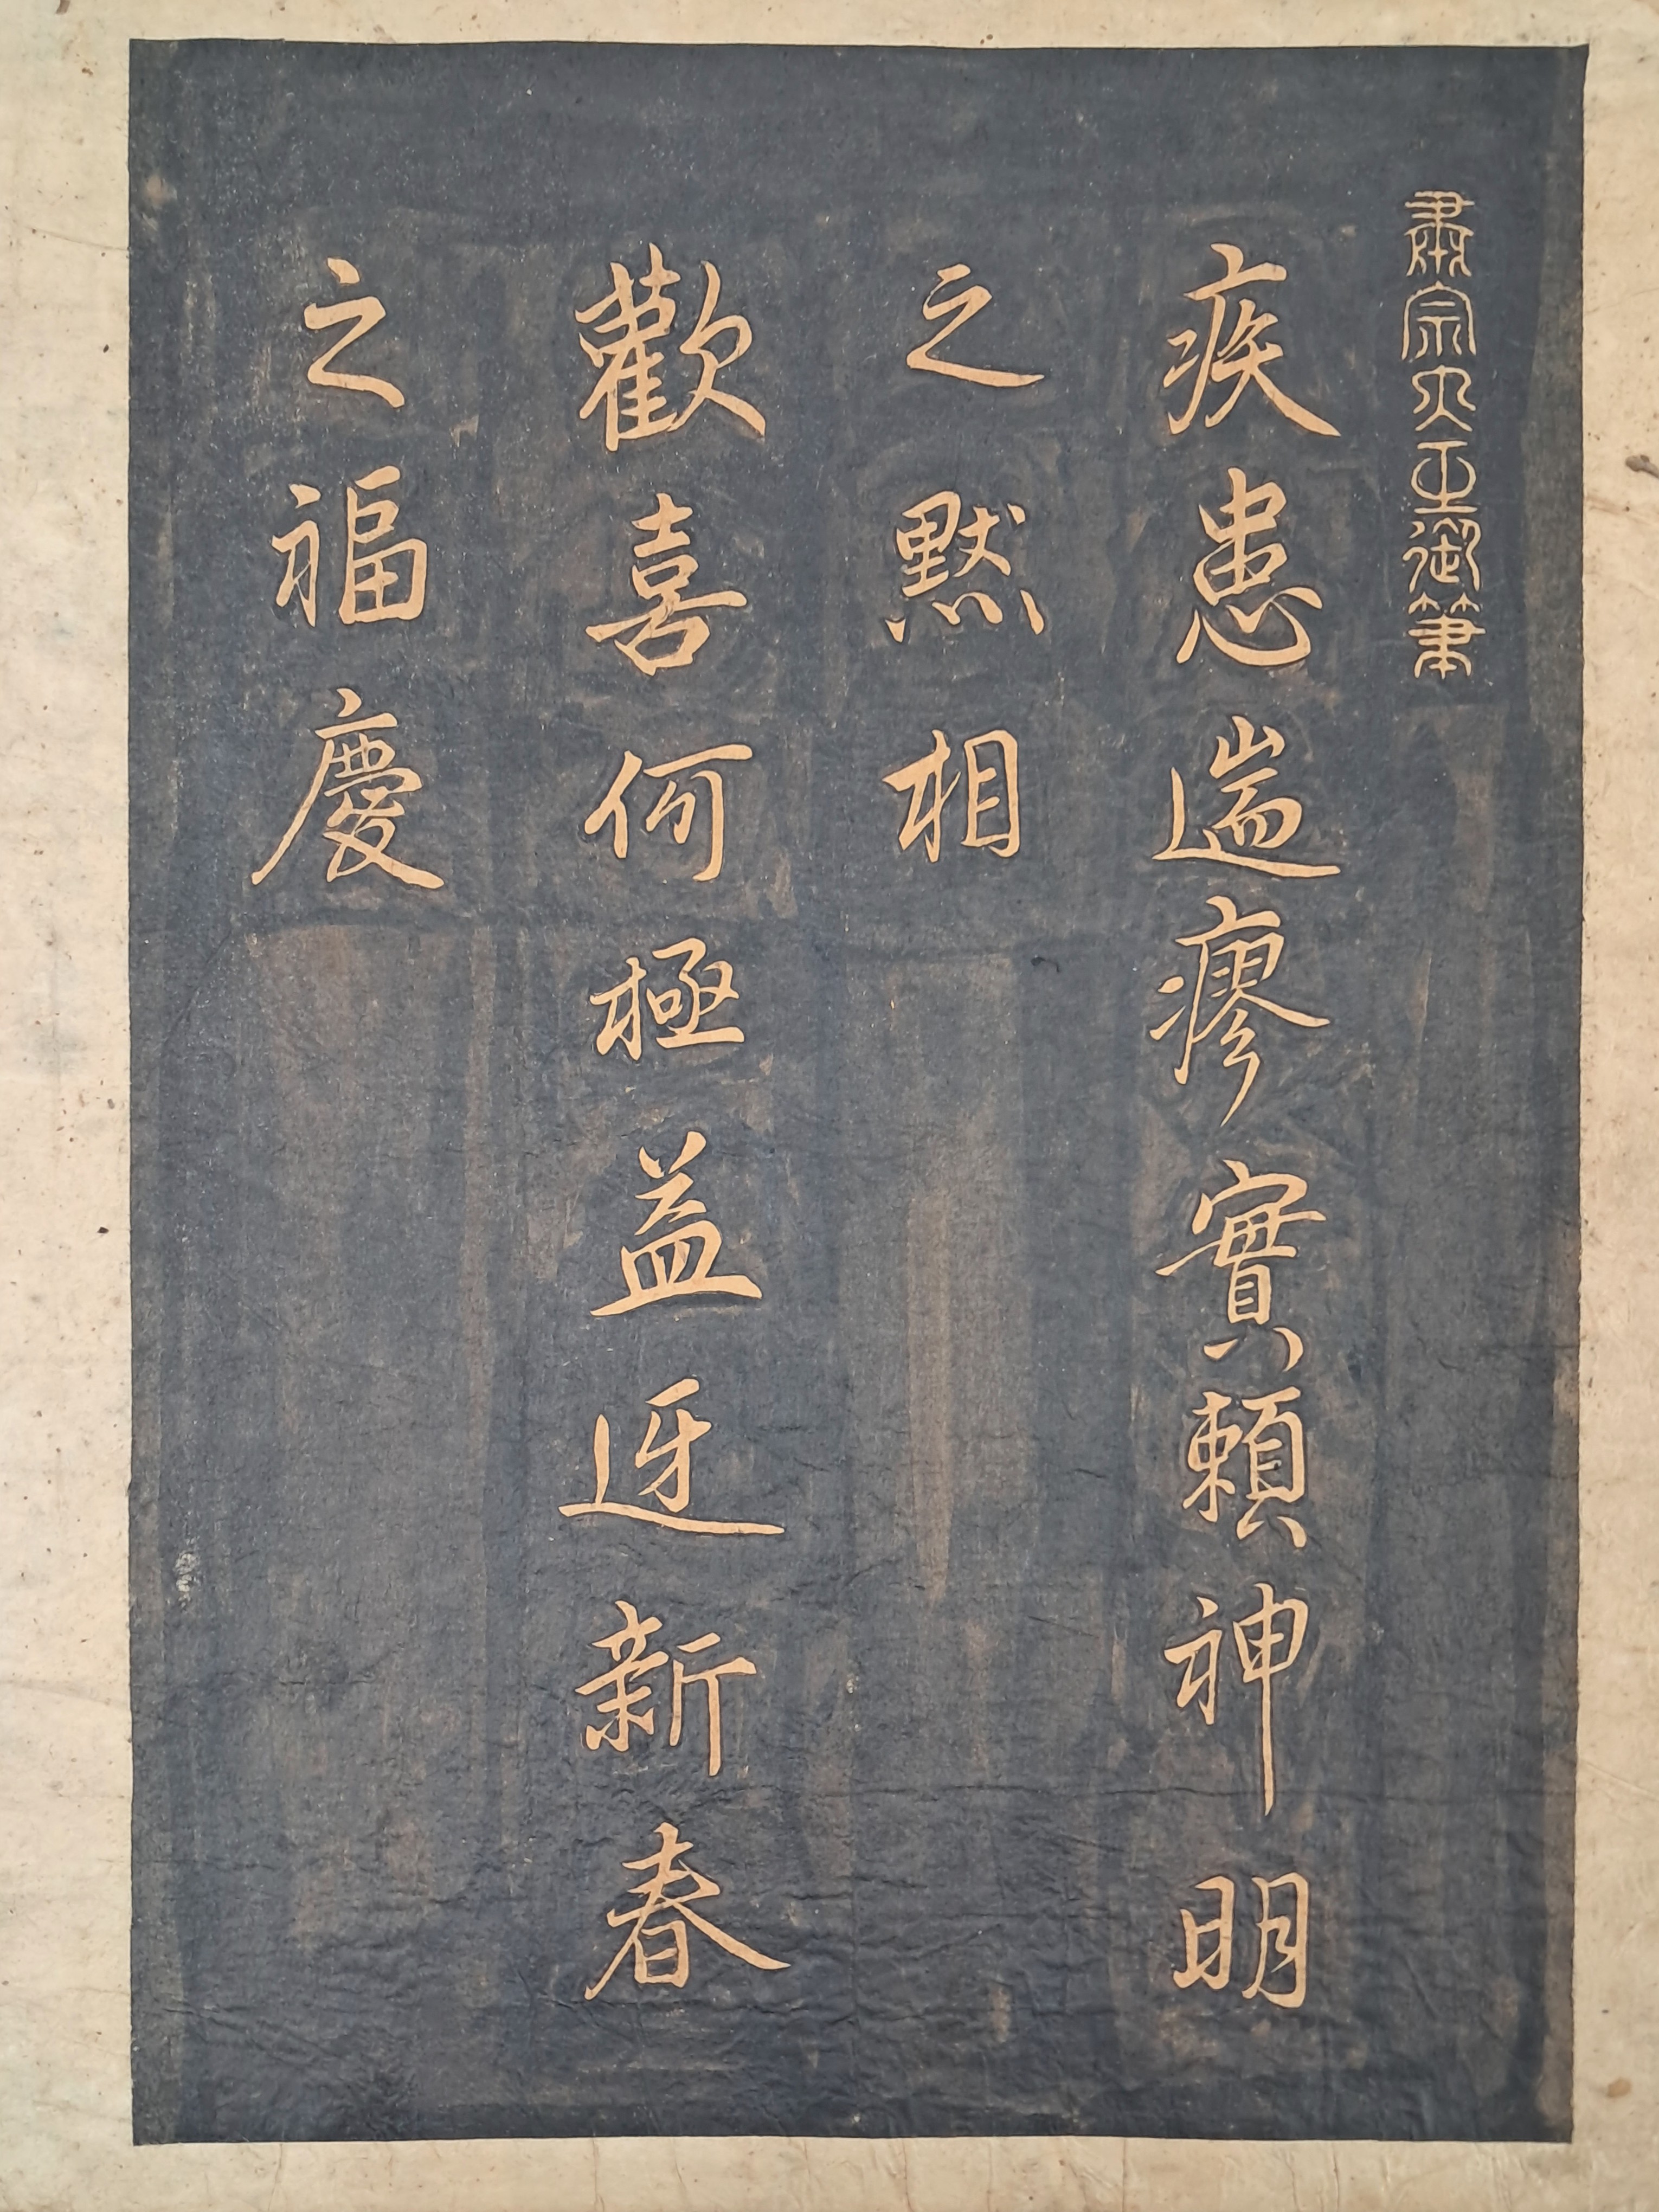 肅宗大王御筆
疾患遄瘳實賴神明
之黙相
歡喜何極益迓新春
之福慶